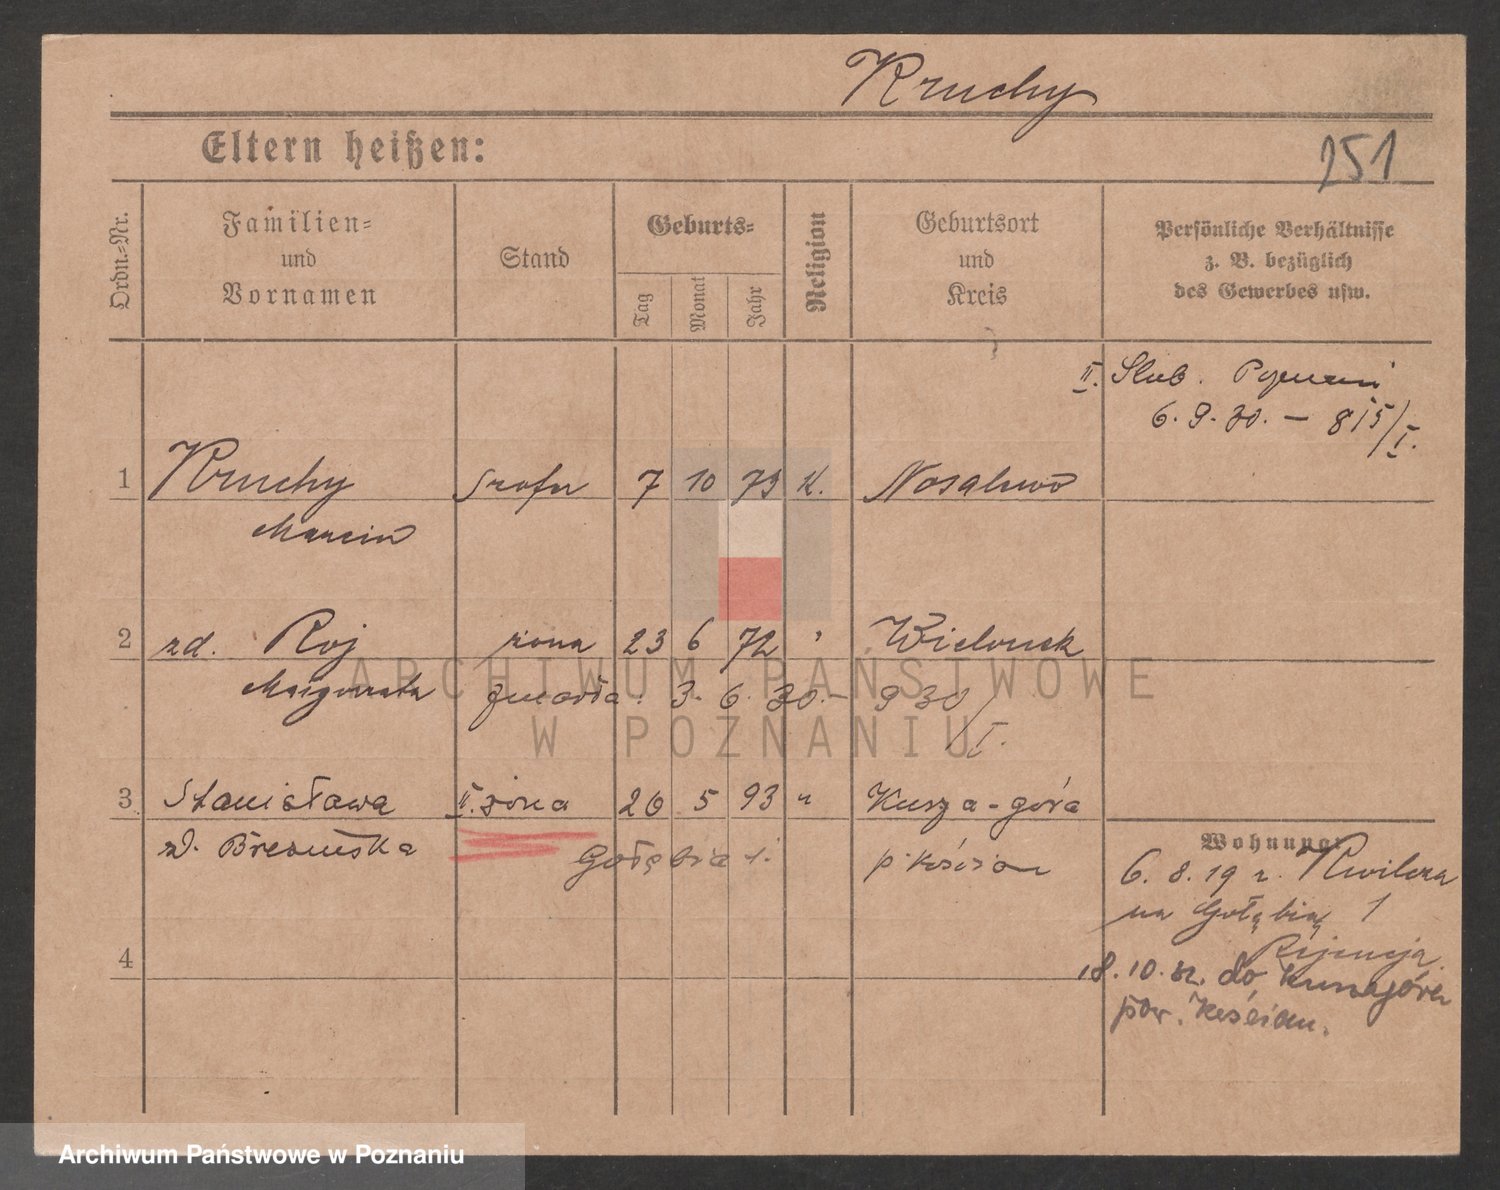 Kruchy
251
Eltern heißen:
Ordn.-Nr.
Familien-
und
Vornamen
Stand
Geburts-
Tag
Monat
Jahr
Religion
Geburtsort
und
Kreis
Persönliche Verhältnisse
z. B. bezüglich
des Gewerbes usw.
II. Slub. Poznań
6. 9. 30. – 815/I.
1 Kruchy szofer 7 10 73 K. Nosalewo
Marcin
2 zd. Roj żona 23 6 72 " Wielonek
Małgorzata zmarła: 3. 6. 30. – 930/I.
3 Stanisława II. żona 26 5 93 " Kusza-góra
Gołębia 1. p. Kościan
Wohnung:
6. 8. 19 z Kwilcza
na Gołębią 1
Rejencja
18. 10. do
pow. Kościan.
4
ARCHIWUM PAŃSTWOWE
W POZNANIU
Archiwum Państwowe w Poznaniu